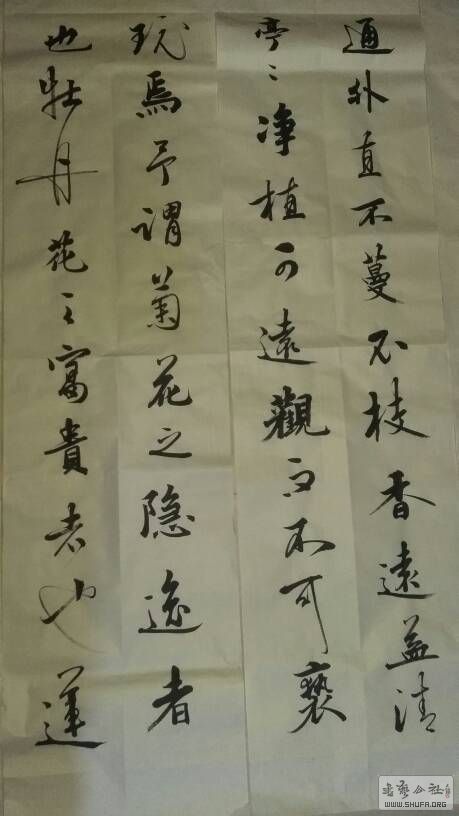 通外直不蔓不枝香遠益清
亭〻净植可遠觀而不可褻
玩焉予謂菊花之隐逸者
也牡丹花之富貴者也蓮
書藝公社
WWW.SHUFA.ORG